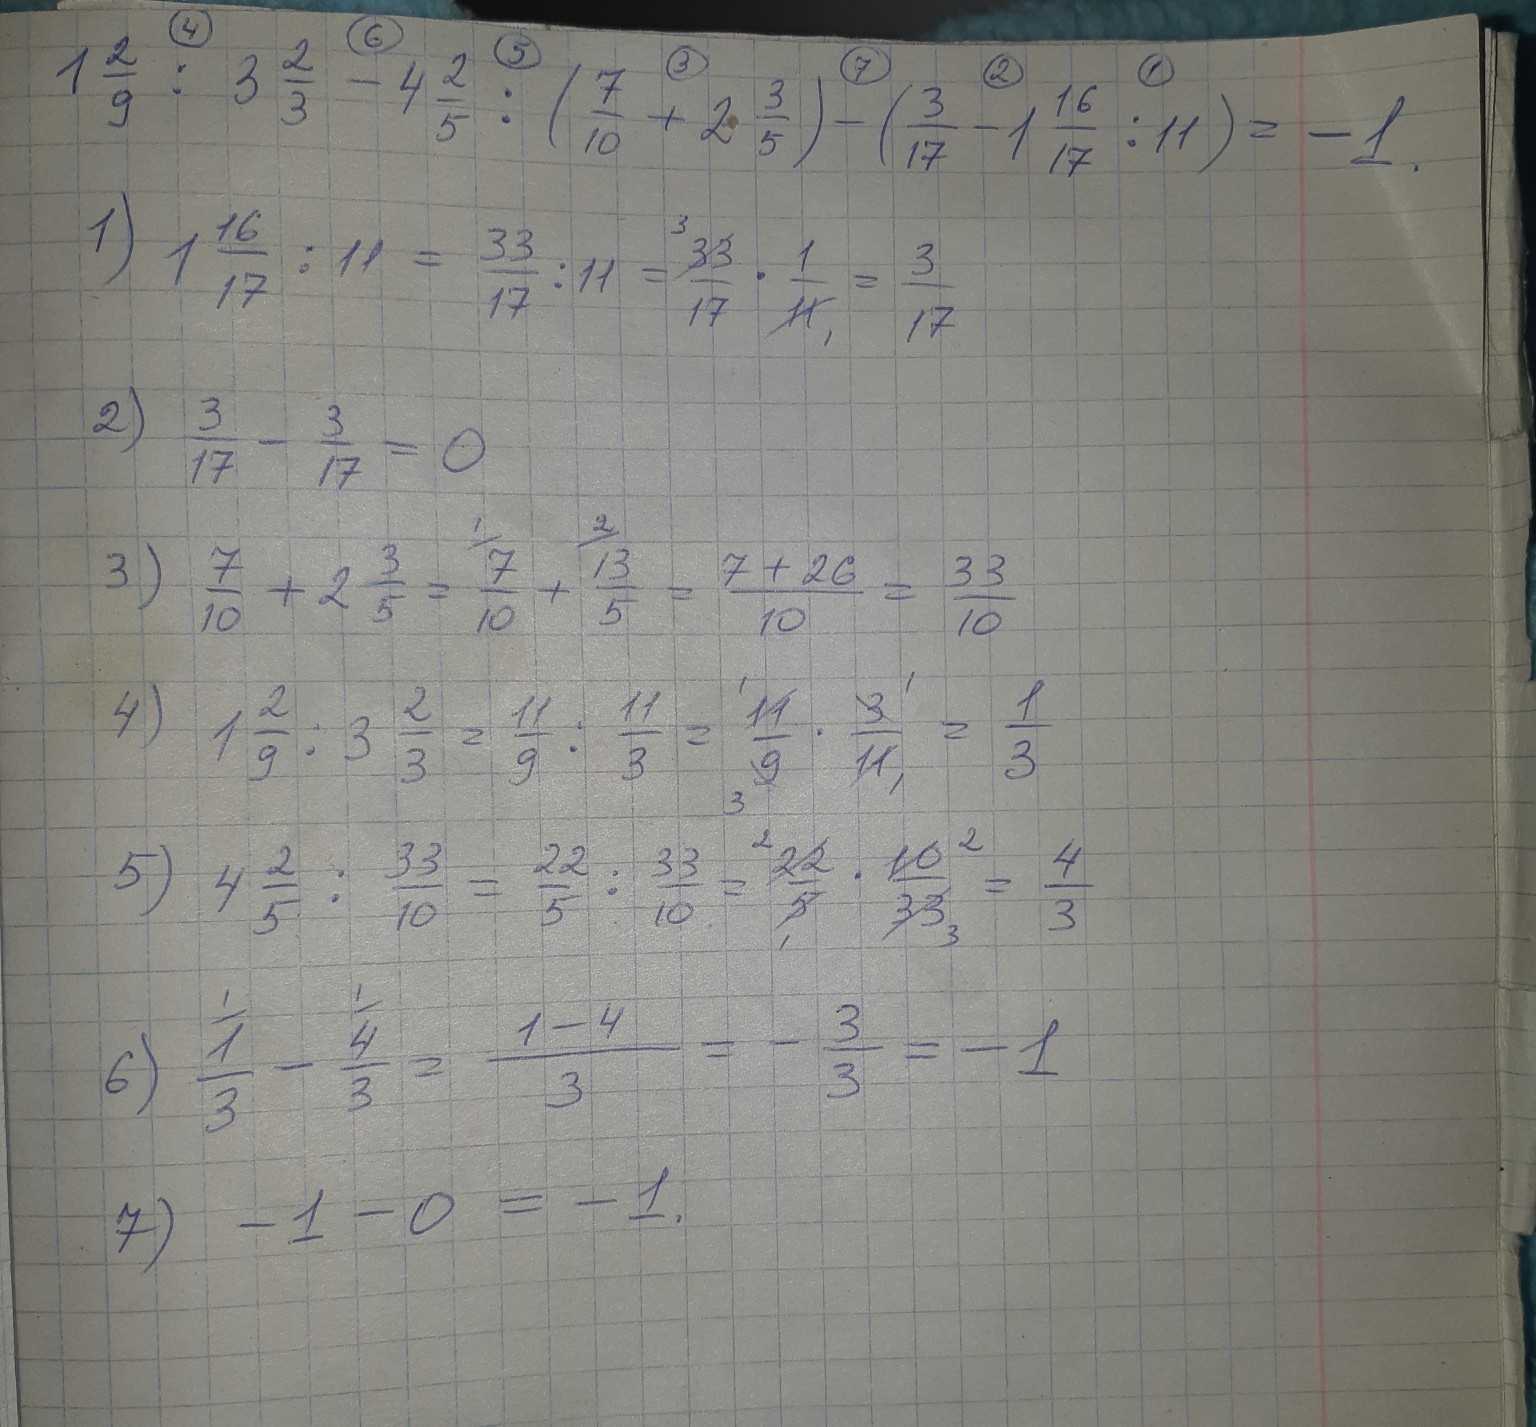 ④ ⑥ ⑤ ③ ⑦ ② ①
1 2/9 : 3 2/3 - 4 2/5 : (7/10 + 2 3/5) - (3/17 - 1 16/17 : 11) = -1.
1) 1 16/17 : 11 = 33/17 : 11 = 3 33/17 · 1/11 1 = 3/17
2) 3/17 - 3/17 = 0
3) 7/10 + 2 3/5 = 1/ 7/10 + 2/ 13/5 = 7+26/10 = 33/10
4) 1 2/9 : 3 2/3 = 11/9 : 11/3 = 1 11/9 3 · 3 1/11 1 = 1/3
5) 4 2/5 : 33/10 = 22/5 : 33/10 = 2 22/5 1 · 10 2/33 3 = 4/3
6) 1/ 1/3 - 1/ 4/3 = 1-4/3 = - 3/3 = -1
7) -1 - 0 = -1.